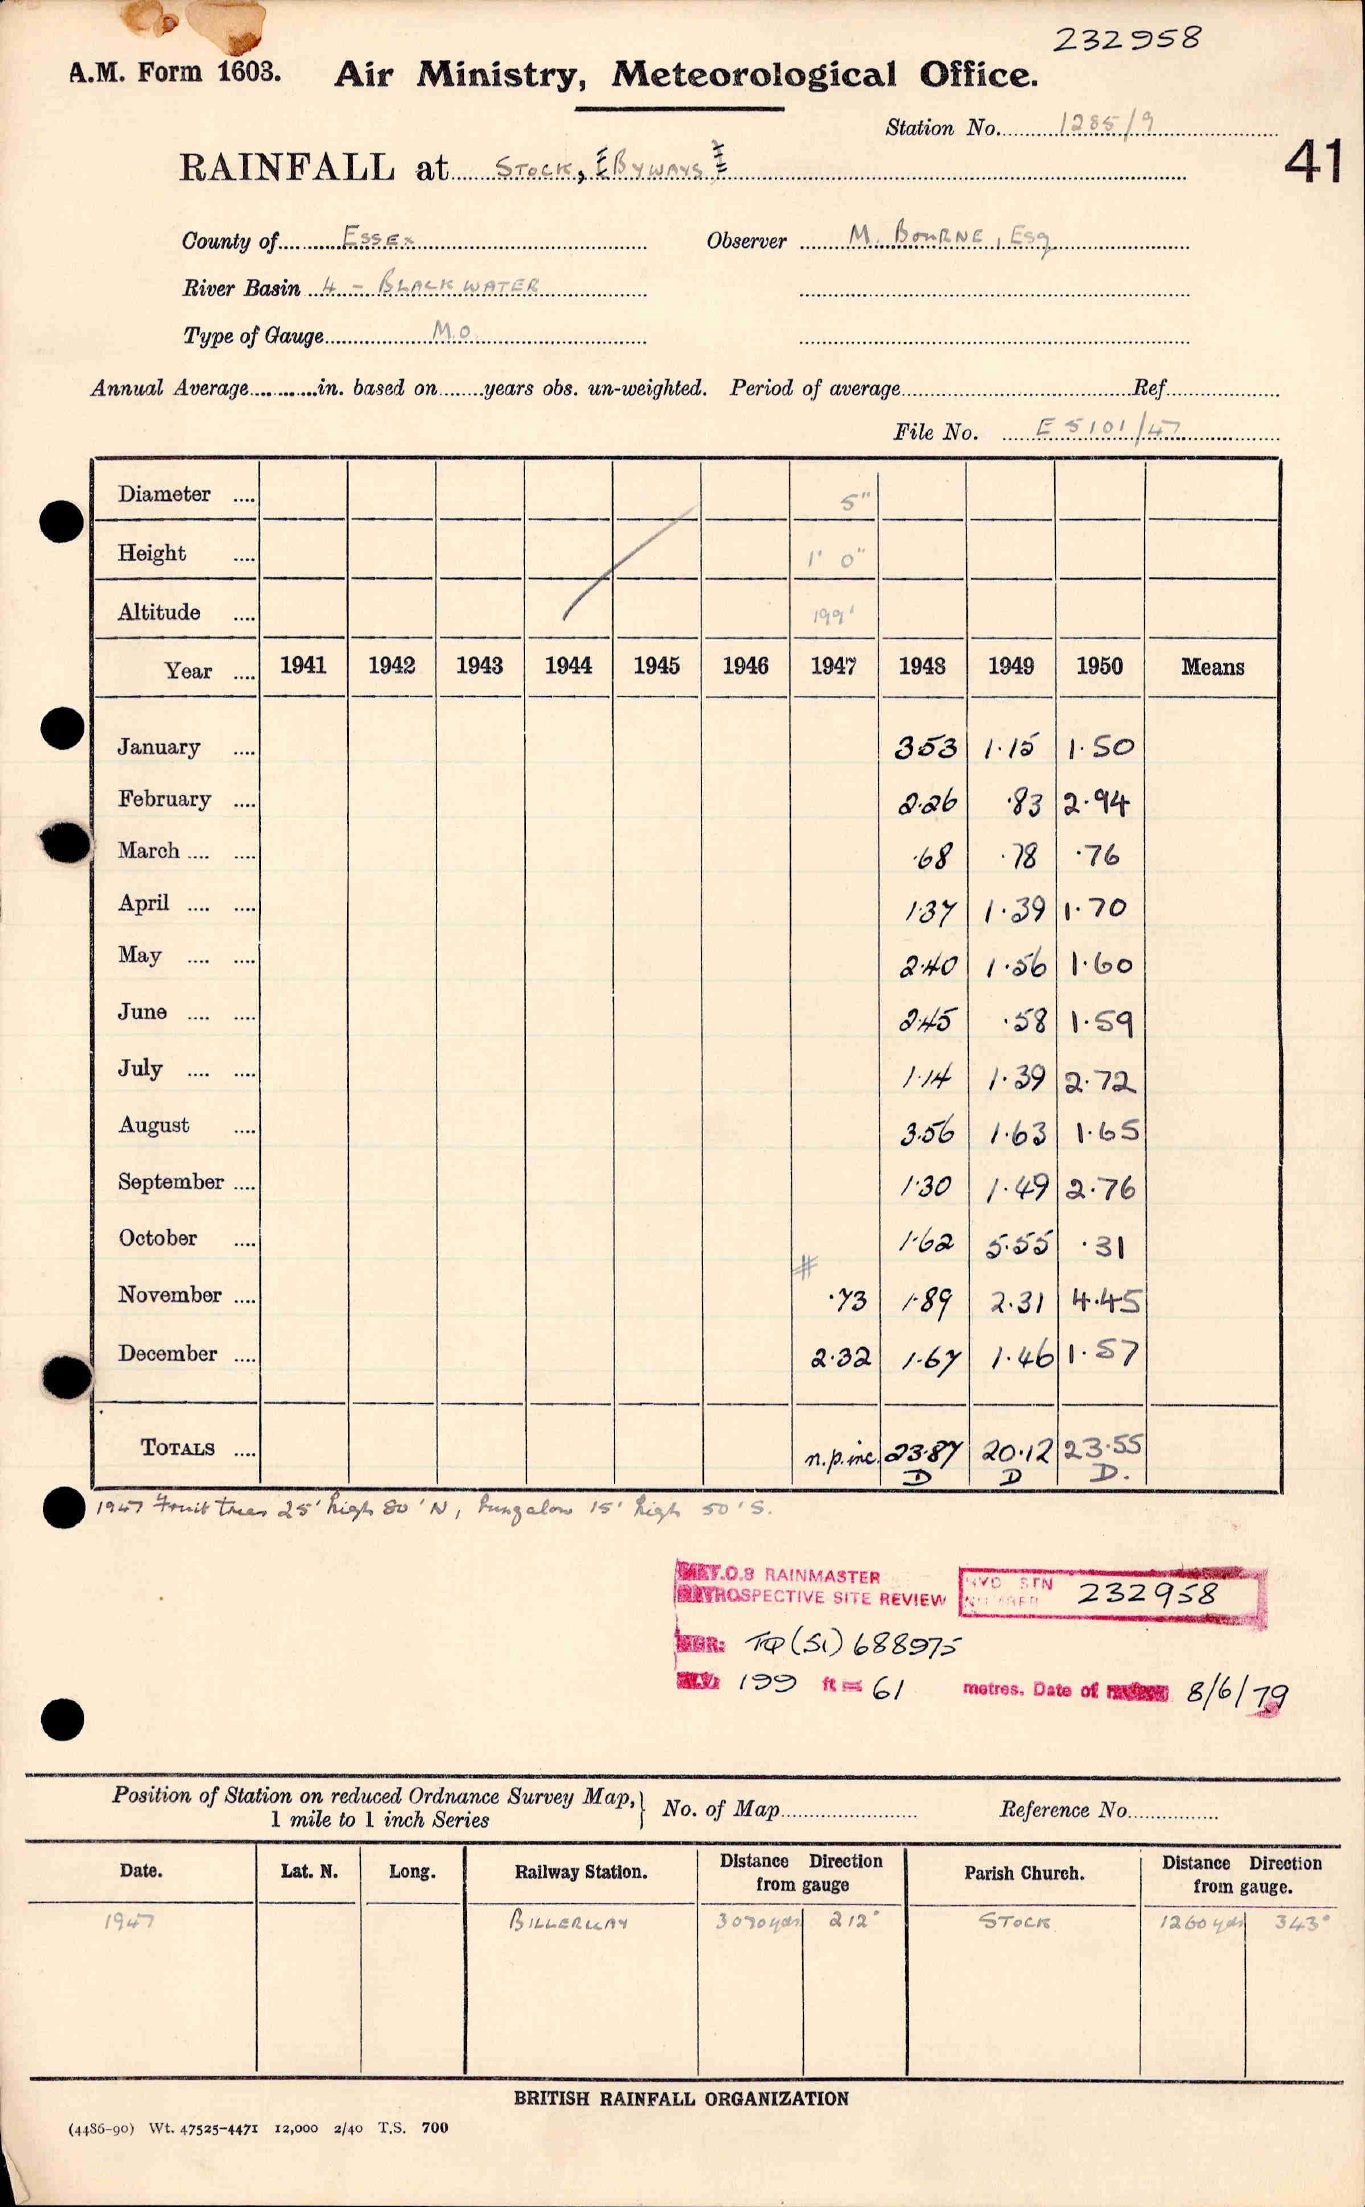 232958
A.M. Form 1603. Air Ministry, Meteorological Office.
Station No. 1285/9
41
RAINFALL at STOCK, [BYWAYS]
County of Essex Observer M. BOURNE, Esq
River Basin 4 - BLACKWATER
Type of Gauge M.O.
Annual Average in. based on years obs. un-weighted. Period of average Ref.
File No. E 5101/47
Diameter .... 5"
Height .... 1' 0"
Altitude .... 199'
Year .... 1941 1942 1943 1944 1945 1946 1947 1948 1949 1950 Means
January .... 3.53 1.15 1.50
February .... 2.26 .83 2.94
March .... .... .68 .78 .76
April .... .... 1.37 1.39 1.70
May .... .... 2.40 1.56 1.60
June .... .... 2.45 .58 1.59
July .... .... 1.14 1.39 2.72
August .... 3.56 1.63 1.65
September .... 1.30 1.49 2.76
October .... 1.62 5.55 .31
November .... .73 1.89 2.31 4.45
December .... 2.32 1.67 1.46 1.57
TOTALS .... n.p.inc. 23.87 20.12 23.55
D D D.
1947 Fruit trees 25' high 80' N, bungalow 15' high 50' S.
MET.O.8 RAINMASTER
RETROSPECTIVE SITE REVIEW
HYD STN
NUMBER 232958
NGR: TQ (51) 688975
ALT: 199 ft = 61 metres. Date of review 8/6/79
Position of Station on reduced Ordnance Survey Map,
1 mile to 1 inch Series
No. of Map Reference No.
Date. Lat. N. Long. Railway Station. Distance Direction from gauge Parish Church. Distance Direction from gauge.
1947 BILLERICAY 3070 yds 212° STOCK 1260 yds 343°
BRITISH RAINFALL ORGANIZATION
(4486-90) Wt. 47525-4471 12,000 2/40 T.S. 700